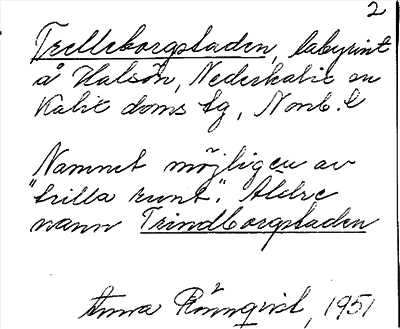 2
Trelleborgstaden, labyrint
å Halsön, Nederkalix sn
Kalix doms tg, Norrb. l
Namnet möjligen av
"trilla runt". Äldre
namn Trindborgstaden
Anna Rönnqvist, 1951